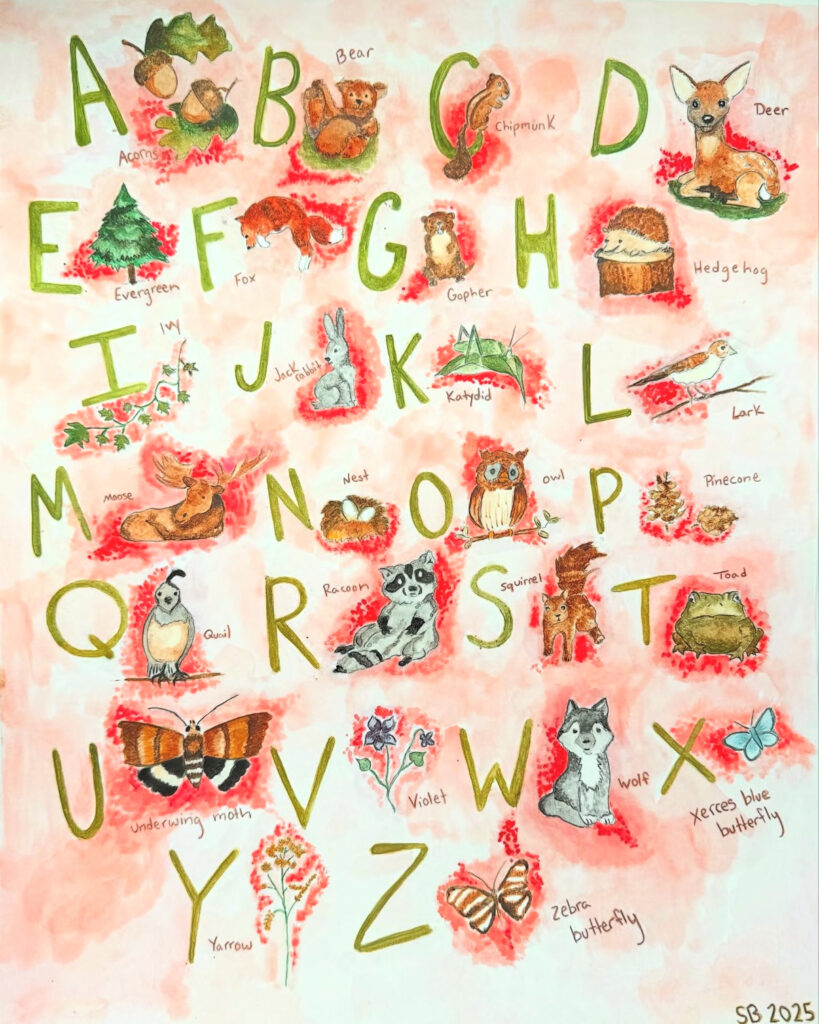 A
Acorns
B
Bear
C
Chipmunk
D
Deer
E
Evergreen
F
Fox
G
Gopher
H
Hedgehog
I
Ivy
J
Jack
rabbit
K
Katydid
L
Lark
M
Moose
N
Nest
O
owl
P
Pinecone
Q
Quail
R
Racoon
S
squirrel
T
Toad
U
underwing moth
V
Violet
W
Wolf
X
Xerces blue
butterfly
Y
Yarrow
Z
Zebra
butterfly
SB 2025